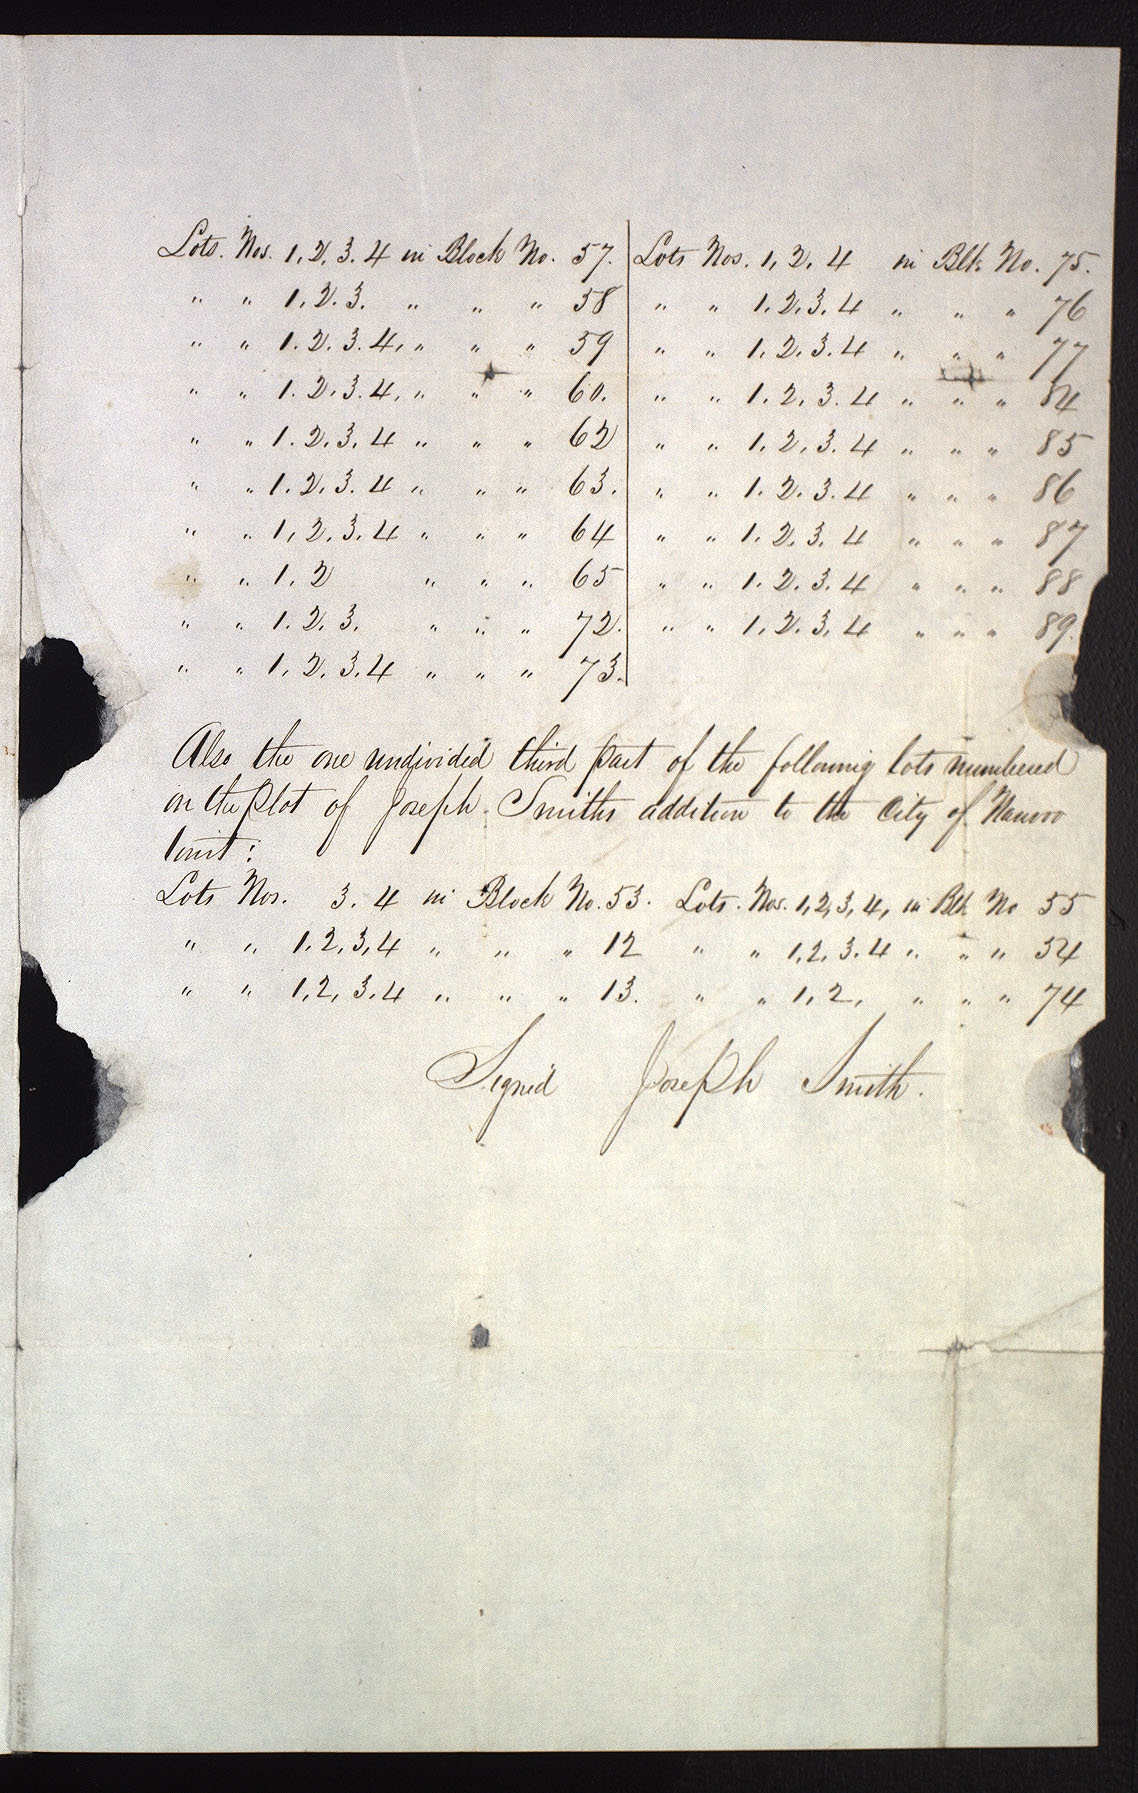 Lots. Nos. 1, 2, 3. 4 in Block No. 57.
" " 1. 2. 3. " " " 58
" " 1. 2. 3. 4. " " " 59
" " 1. 2. 3. 4. " " " 60.
" " 1. 2. 3. 4 " " " 62
" " 1. 2. 3. 4 " " " 63.
" " 1, 2, 3. 4 " " " 64
" " 1. 2 " " " 65
" " 1. 2. 3. " " " 72.
" " 1. 2. 3. 4 " " " 73.
Lots Nos. 1, 2, 4 in Blk No. 75.
" " 1. 2. 3. 4 " " " 76
" " 1. 2. 3. 4 " " " 77
" " 1. 2. 3. 4 " " " 84
" " 1. 2. 3. 4 " " " 85
" " 1. 2. 3. 4 " " " 86
" " 1. 2. 3. 4 " " " 87
" " 1. 2. 3. 4 " " " 88
" " 1. 2. 3. 4 " " " 89.
Also the one undivided third part of the following lots numbered
on the Plot of Joseph Smiths addition to the City of Nauvoo
towit:
Lots Nos. 3. 4 in Block No. 53. Lots. Nos. 1, 2, 3, 4, in Blk No 55
" " 1. 2, 3, 4 " " " 12 " " 1, 2. 3. 4 " " " 54
" " 1, 2, 3. 4 " " " 13. " " 1, 2, " " " 74
Signed Joseph Smith.